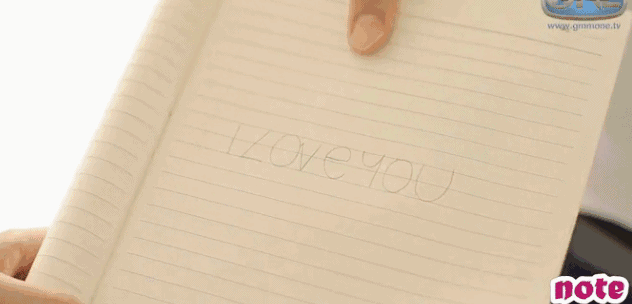 www.gmmone.tv
I LOVE YOU
note